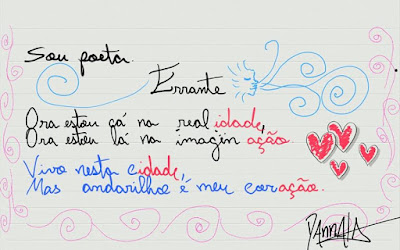 Sou poeta.
Errante
Ora estou cá na realidade,
Ora estou lá na imaginação.
Vivo nesta cidade,
Mas andarilhoe é meu coração.